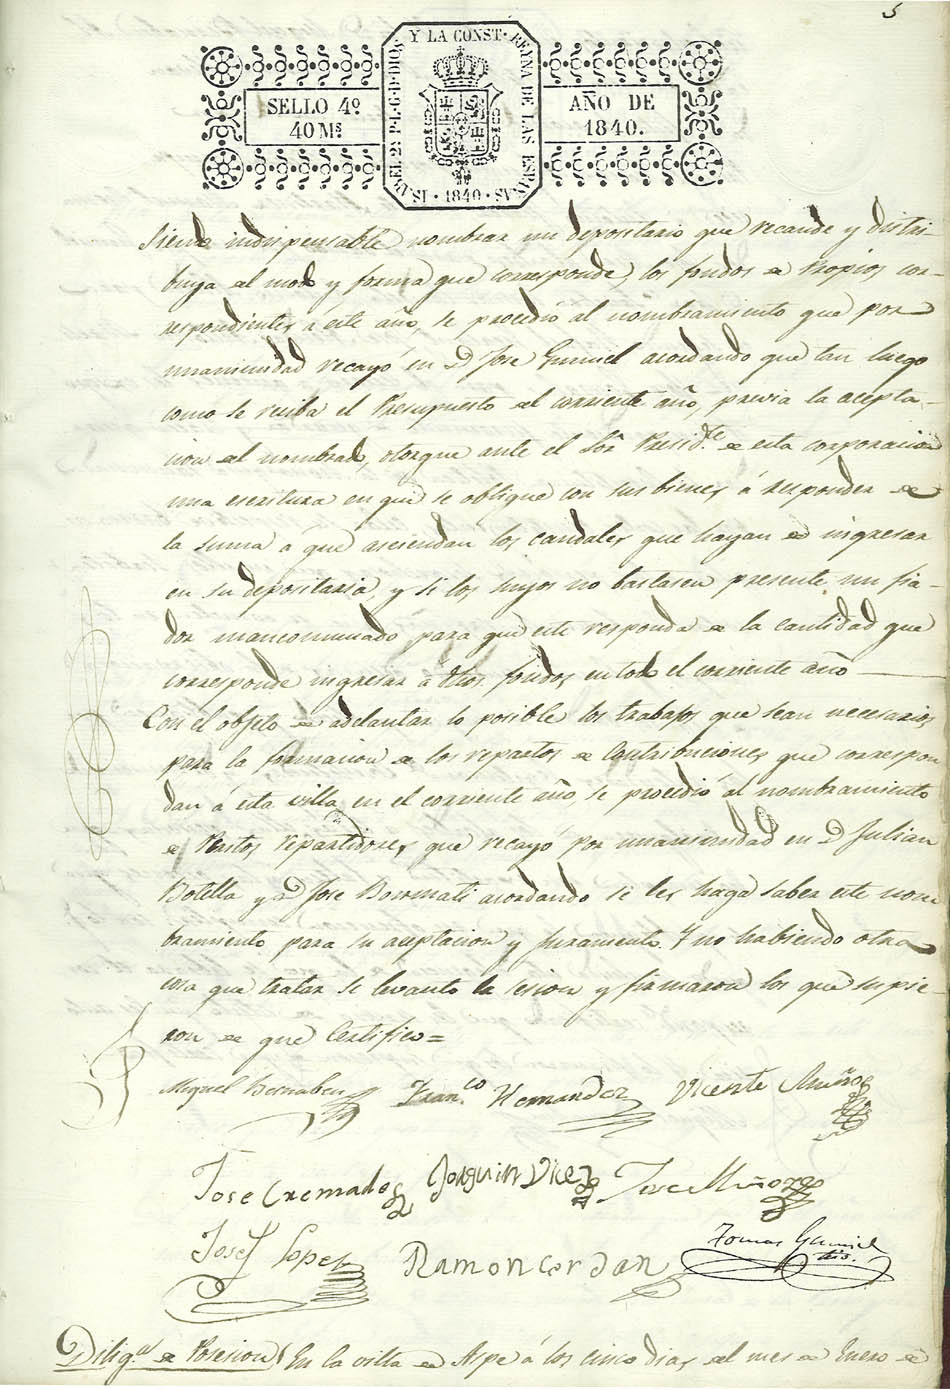 5
Y LA CONST. REYNA DE LAS ESPAÑAS
ISABEL 2ª P. L. G. D. DIOS
SELLO 4º
40 Ms
AÑO DE
1840.
· 1840 ·
Siendo indispensable nombrar un depositario que recaude y distri-
buya del modo y forma que corresponde, los fondos de Propios cor-
respondientes á este año, se procedió al nombramiento que por
unanimidad recayó en D. Jose Gumiel acordando que tan luego
como se reciba el Presupuesto del corriente año, previa la acepta-
cion del nombrado, otorgue ante el Sor. Presidte. de esta corporacion
una escritura en que se obligue con sus bienes á responder de
la suma á que asciendan los caudales que hayan de ingresar
en su depositaria, y si los suyos no bastasen presente un fia-
dor mancomunado para que este responda de la cantidad que
corresponde ingresar á dhos. fondos en todo el corriente año
Con el objeto de adelantar lo posible los trabajos que sean necesarios
para la formacion de los repartos de Contribuciones que correspon
dan á esta villa en el corriente año se procedió al nombramiento
de Peritos repartidores que recayó por unanimidad en D. Julian
Botella y D. Jose Bormati acordando se les haga saber este nom
bramiento para su aceptacion y juramento. Y no habiendo otra
cosa que tratar se levanto la sesion y firmaron los que supie-
ron de que Certifico=
Miguel Bernabeu Franco. Hernandez Vicente Muñoz
Jose Cremades Joaquin Vicez Jose Miñorge
Josef Lopez Ramon cerdan Tomas Gumiel
Srio.
Diliga. de Posesion En la villa de Aspe á los cinco dias del mes de Enero de